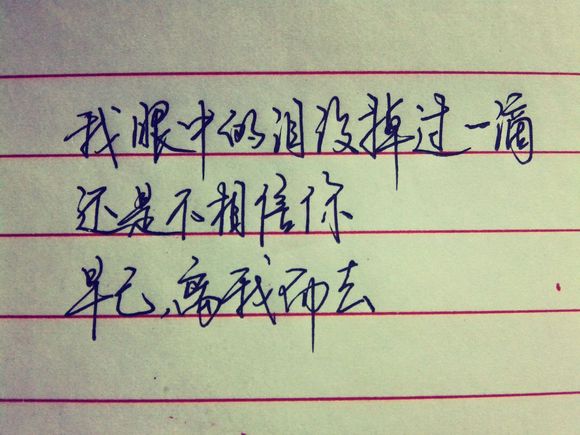 我眼中的泪没掉过一滴
还是不相信你
早已离我而去